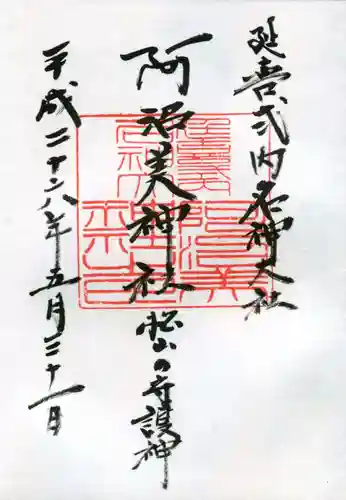 延喜式内名神大社
阿沼美神社 松山の守護神
平成二十八年五月三十一日